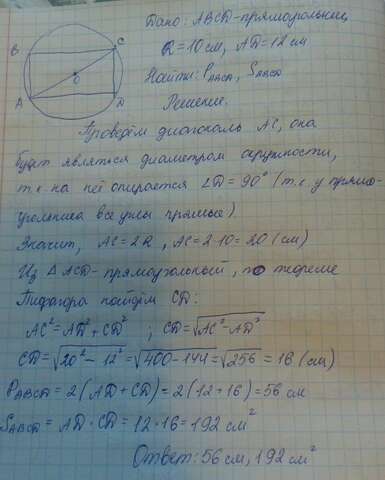 Дано: ABCD-прямоугольник,
R = 10 см, AD = 12 см
Найти: P ABCD, S ABCD
Решение.
B
C
O
A
D
Проведём диагональ AC, она
будет являться диаметром окружности,
т.к. на неё опирается ∠D = 90° (т.к. у прямо-
угольника все углы прямые).
Значит, AC = 2R, AC = 2·10 = 20 (см)
Из Δ ACD - прямоугольный, по теореме
Пифагора найдём CD:
AC² = AD² + CD² ; CD = √AC² - AD²
CD = √20² - 12² = √400 - 144 = √256 = 16 (см)
P ABCD = 2(AD + CD) = 2(12 + 16) = 56 см
S ABCD = AD · CD = 12 · 16 = 192 см²
Ответ: 56 см, 192 см²